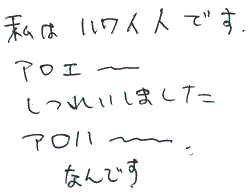 私は ハワイ人です.
アロエ〜
しつれいしました
アロハ〜.
なんです